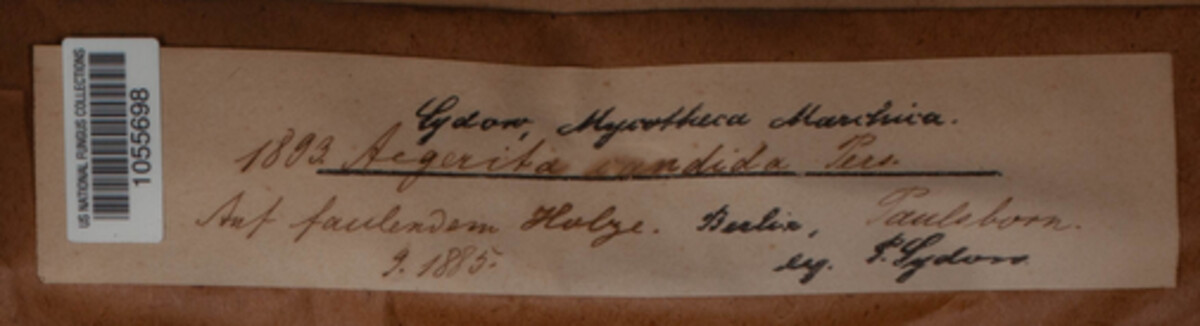 US NATIONAL FUNGUS COLLECTIONS
1055698
Sydow, Mycotheca Marchica.
1893. Aegerita candida Pers.
Auf faulendem Holze. Berlin, Paulsborn.
9. 1885. leg. P. Sydow